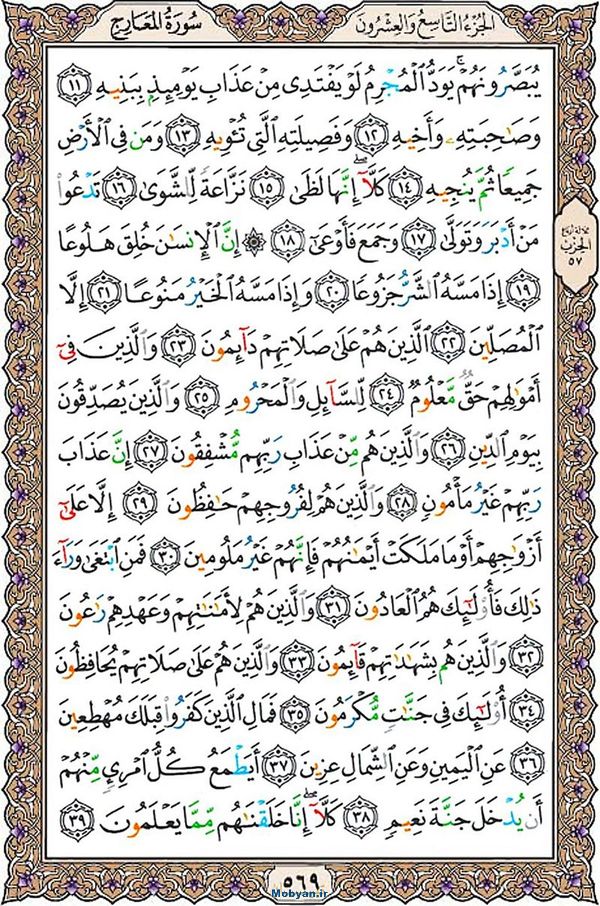 الجُزءُ التَّاسِعُ وَالعِشرُونَ
سُورَةُ المَعَارِجِ
يُبَصَّرُونَهُمْ ۚ يَوَدُّ الْمُجْرِمُ لَوْ يَفْتَدِى مِنْ عَذَابِ يَوْمِئِذٍ بِبَنِيهِ ﴿١١﴾
وَصَاحِبَتِهِ وَأَخِيهِ ﴿١٢﴾ وَفَصِيلَتِهِ الَّتِى تُـْٔوِيهِ ﴿١٣﴾ وَمَن فِى الْأَرْضِ
جَمِيعًا ثُمَّ يُنجِيهِ ﴿١٤﴾ كَلَّا ۖ إِنَّهَا لَظَىٰ ﴿١٥﴾ نَزَّاعَةً لِّلشَّوَىٰ ﴿١٦﴾ تَدْعُوا
مَنْ أَدْبَرَ وَتَوَلَّىٰ ﴿١٧﴾ وَجَمَعَ فَأَوْعَىٰ ﴿١٨﴾ ۞ إِنَّ الْإِنسَانَ خُلِقَ هَلُوعًا
﴿١٩﴾ إِذَا مَسَّهُ الشَّرُّ جَزُوعًا ﴿٢٠﴾ وَإِذَا مَسَّهُ الْخَيْرُ مَنُوعًا ﴿٢١﴾ إِلَّا
الْمُصَلِّينَ ﴿٢٢﴾ الَّذِينَ هُمْ عَلَىٰ صَلَاتِهِمْ دَآئِمُونَ ﴿٢٣﴾ وَالَّذِينَ فِىٓ
أَمْوَالِهِمْ حَقٌّ مَّعْلُومٌ ﴿٢٤﴾ لِّلسَّآئِلِ وَالْمَحْرُومِ ﴿٢٥﴾ وَالَّذِينَ يُصَدِّقُونَ
بِيَوْمِ الدِّينِ ﴿٢٦﴾ وَالَّذِينَ هُم مِّنْ عَذَابِ رَبِّهِم مُّشْفِقُونَ ﴿٢٧﴾ إِنَّ عَذَابَ
رَبِّهِمْ غَيْرُ مَأْمُونٍ ﴿٢٨﴾ وَالَّذِينَ هُمْ لِفُرُوجِهِمْ حَافِظُونَ ﴿٢٩﴾ إِلَّا عَلَىٰٓ
أَزْوَاجِهِمْ أَوْ مَا مَلَكَتْ أَيْمَانُهُمْ فَإِنَّهُمْ غَيْرُ مَلُومِينَ ﴿٣٠﴾ فَمَنِ ابْتَغَىٰ وَرَآءَ
ذَالِكَ فَأُولَٰٓئِكَ هُمُ الْعَادُونَ ﴿٣١﴾ وَالَّذِينَ هُمْ لِأَمَانَاتِهِمْ وَعَهْدِهِمْ رَاعُونَ
﴿٣٢﴾ وَالَّذِينَ هُم بِشَهَادَاتِهِمْ قَآئِمُونَ ﴿٣٣﴾ وَالَّذِينَ هُمْ عَلَىٰ صَلَاتِهِمْ يُحَافِظُونَ
﴿٣٤﴾ أُولَٰٓئِكَ فِى جَنَّاتٍ مُّكْرَمُونَ ﴿٣٥﴾ فَمَالِ الَّذِينَ كَفَرُوا قِبَلَكَ مُهْطِعِينَ
﴿٣٦﴾ عَنِ الْيَمِينِ وَعَنِ الشِّمَالِ عِزِينَ ﴿٣٧﴾ أَيَطْمَعُ كُلُّ امْرِئٍ مِّنْهُمْ
أَن يُدْخَلَ جَنَّةَ نَعِيمٍ ﴿٣٨﴾ كَلَّآ ۖ إِنَّا خَلَقْنَاهُم مِّمَّا يَعْلَمُونَ ﴿٣٩﴾
الحزب
٥٧
٥٦٩
Mobyan.ir